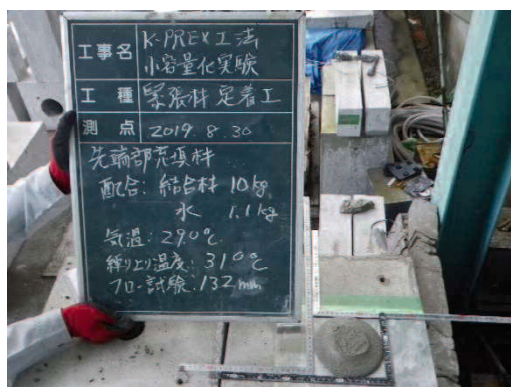 工事名 K-PREX工法
小容量化実験
工種 緊張材 定着工
測点 2019.8.30
先端部充填材
配合: 結合材 10kg
水 1.1kg
気温: 29.0℃
練り上り温度: 31.0℃
フロー試験: 132mm